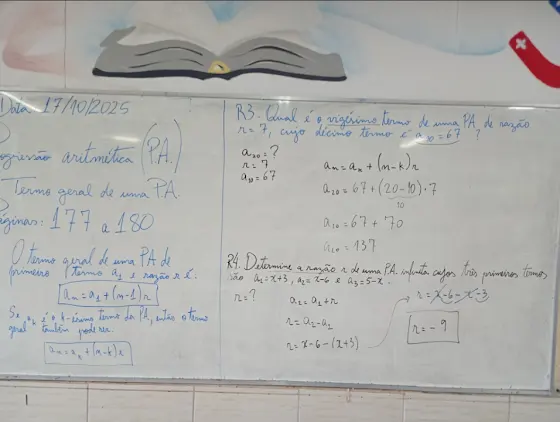 Data: 17/10/2025
ogressão aritmética (P.A.)
Termo geral de uma PA.
áginas: 177 a 180
O termo geral de uma PA de
primeiro termo a₁ e razão r é:
aₙ = a₁ + (n-1)r
Se aₖ é o k-ésimo termo da PA, então o termo
geral também pode ser:
aₙ = aₖ + (n-k)r
R3. Qual é o vigésimo termo de uma PA de razão
r = 7, cujo décimo termo é a₁₀ = 67 ?
a₂₀ = ?
r = 7
a₁₀ = 67
aₙ = aₖ + (n-k)r
a₂₀ = 67 + (20-10)·7
10
a₂₀ = 67 + 70
a₂₀ = 137
R4. Determine a razão r de uma PA infinita cujos três primeiros termos
são a₁ = x+3, a₂ = x-6 e a₃ = 5-x.
r = ?
a₂ = a₁ + r
r = a₂ - a₁
r = x-6-(x+3)
r = x-6-x-3
r = -9